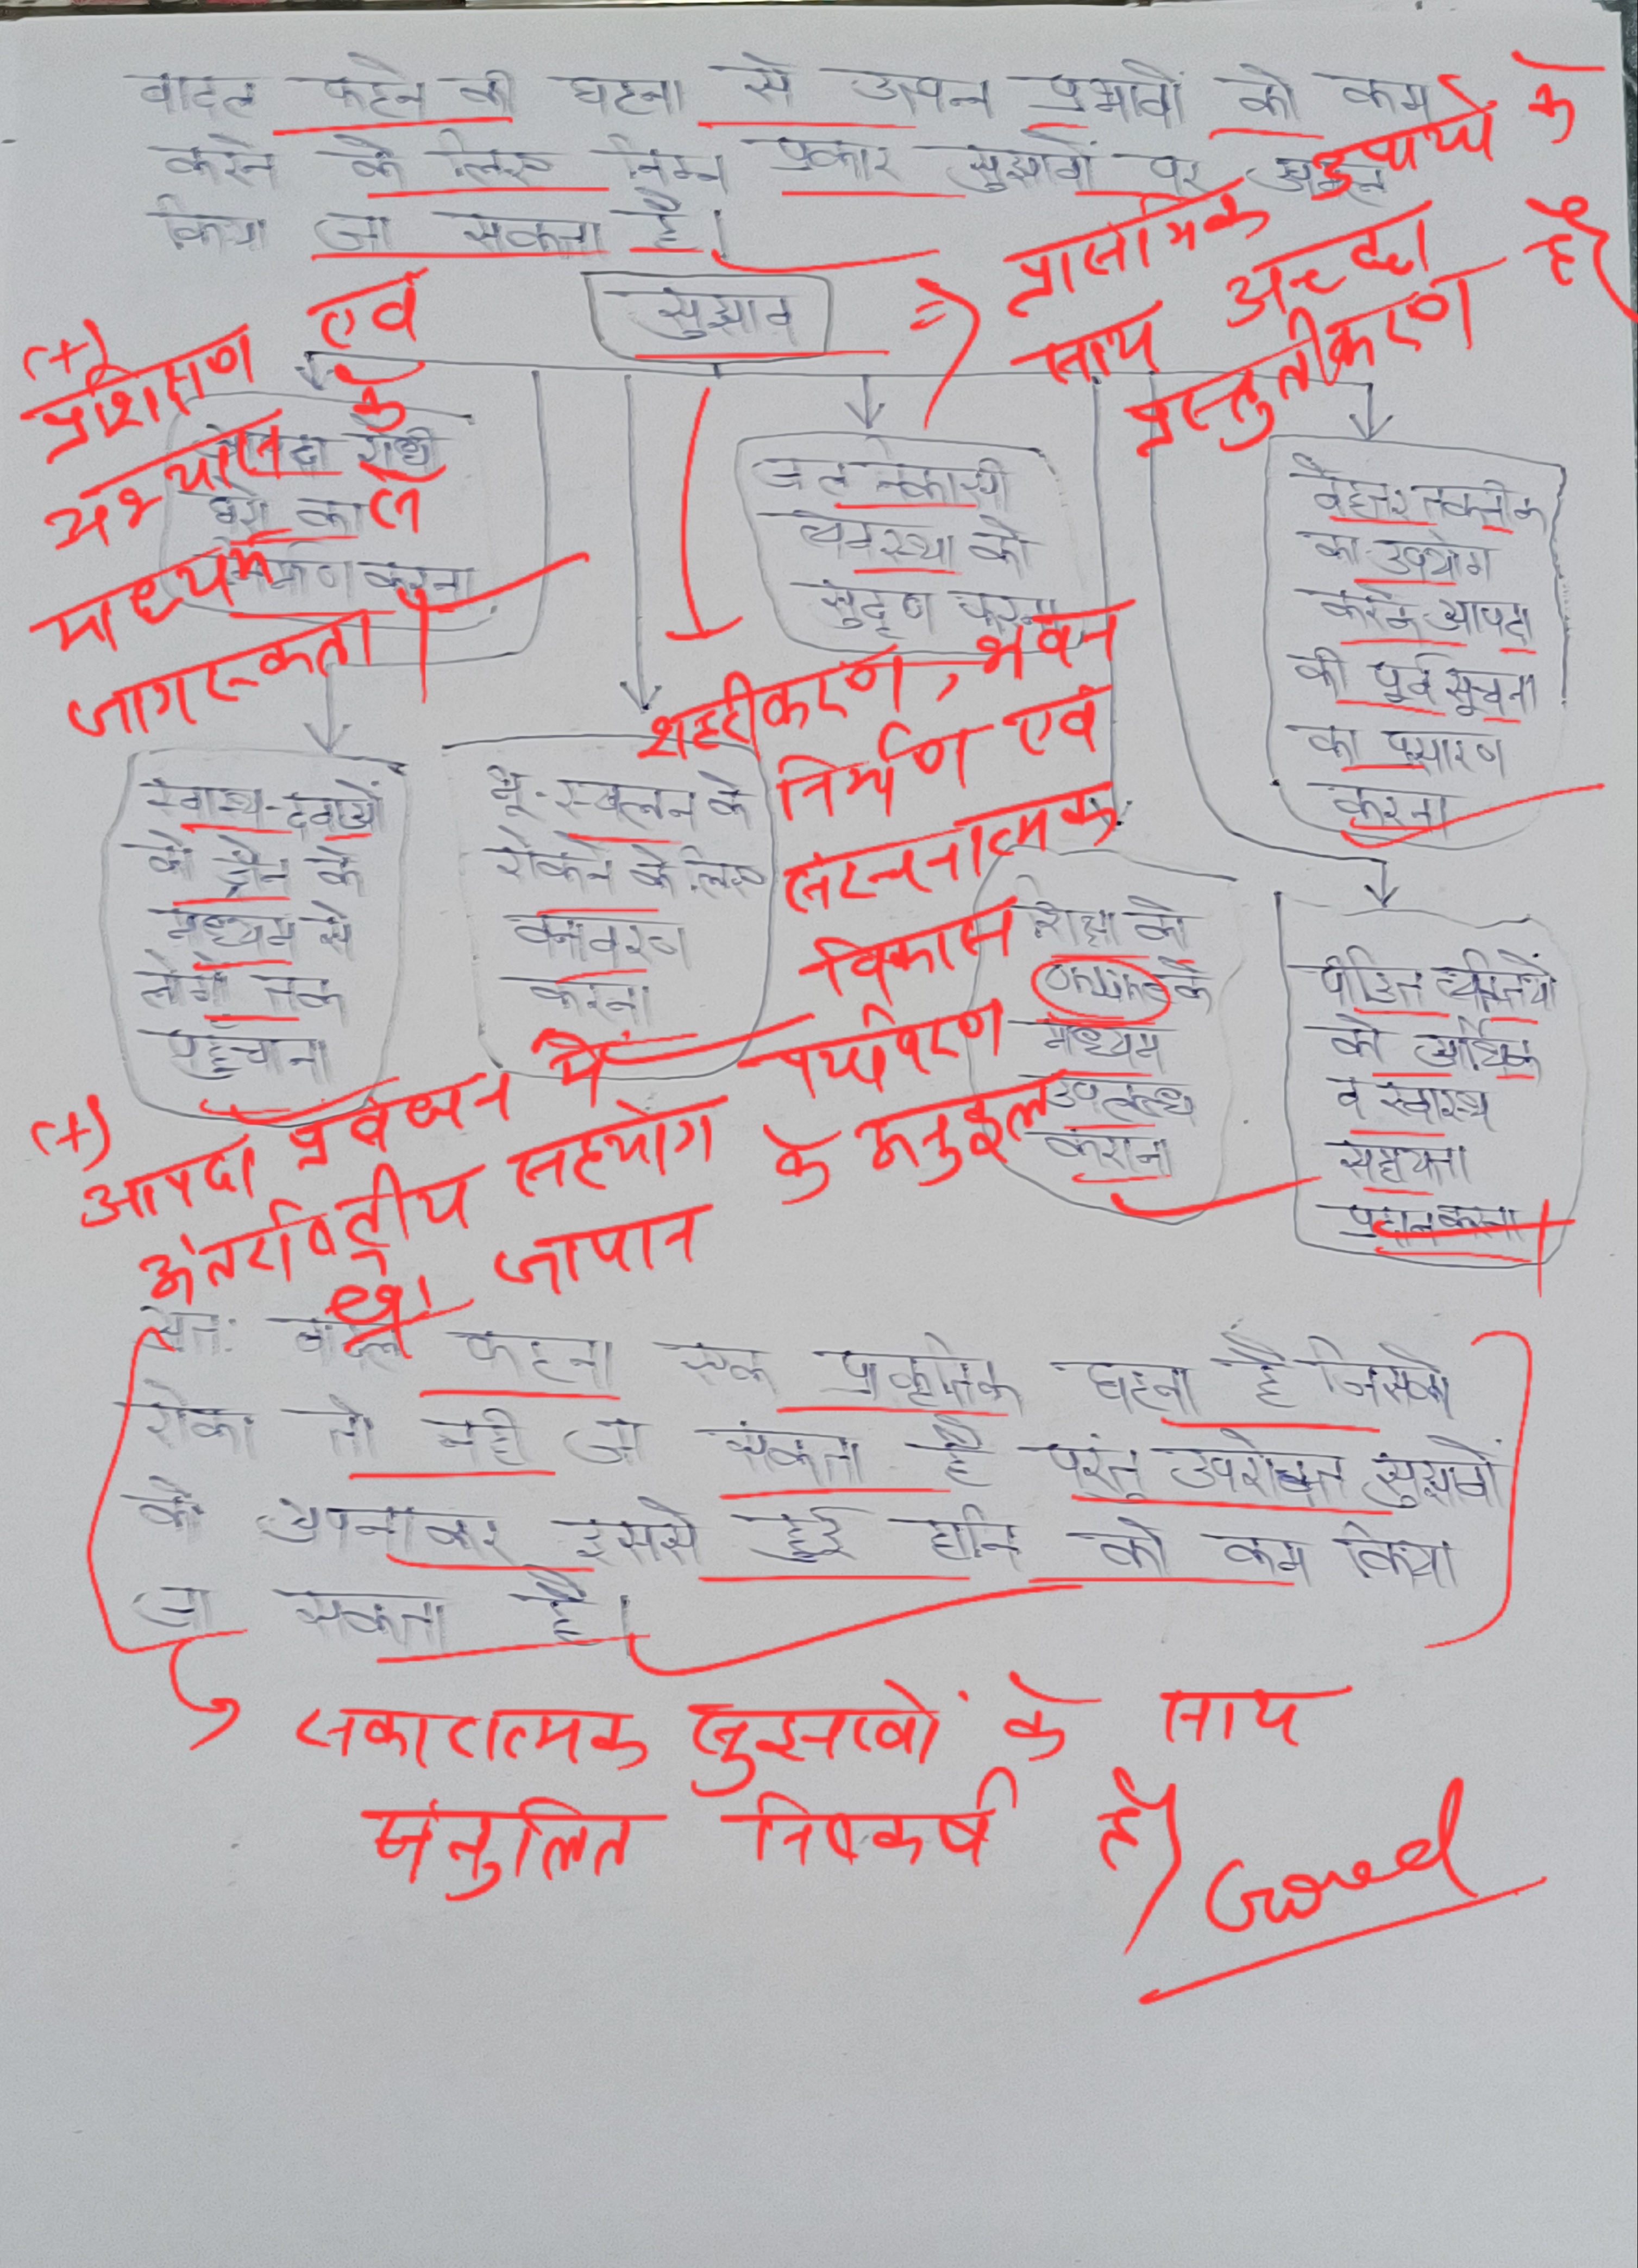 बादल फटने की घटना से उत्पन्न प्रभावों को कम
करने के लिए निम्न प्रकार सुझावों पर अमल
किया जा सकता है।
=) प्रासंगिक उपायों के
साथ अच्छा
प्रस्तुतीकरण है।
सुझाव
(+)
प्रशिक्षण एवं
अभ्यास के
माध्यम से
जागरूकता।
आपदा रोधी
घरों का
निर्माण करना
जल निकासी
व्यवस्था को
सुदृण करना
बेहतर तकनीक
का उपयोग
करके आपदा
की पूर्व सूचना
का प्रसारण
करना
शहरीकरण, भवन
निर्माण एवं
संरचनात्मक
विकास
पर्यावरण
के अनुकूल
स्वास्थ्य-दवाओं
को ड्रोन के
माध्यम से
लोगों तक
पहुँचाना
भू-स्खलन के
रोकने के लिए
वनावरण
करना
शिक्षा को
Online के
माध्यम
उपलब्ध
कराना
पीडित व्यक्तियों
को आर्थिक
व स्वास्थ्य
सहायता
प्रदान करना
(+)
आपदा प्रबंधन में
अंतर्राष्ट्रीय सहयोग
जापान
अतः बादल फटना एक प्राकृतिक घटना है जिसको
रोका तो नही जा सकता है परंतु उपरोक्त सुझावों
को अपनाकर इससे हुई हानि को कम किया
जा सकता है।
सकारात्मक सुझावों के साथ
संतुलित निष्कर्ष है।
Good